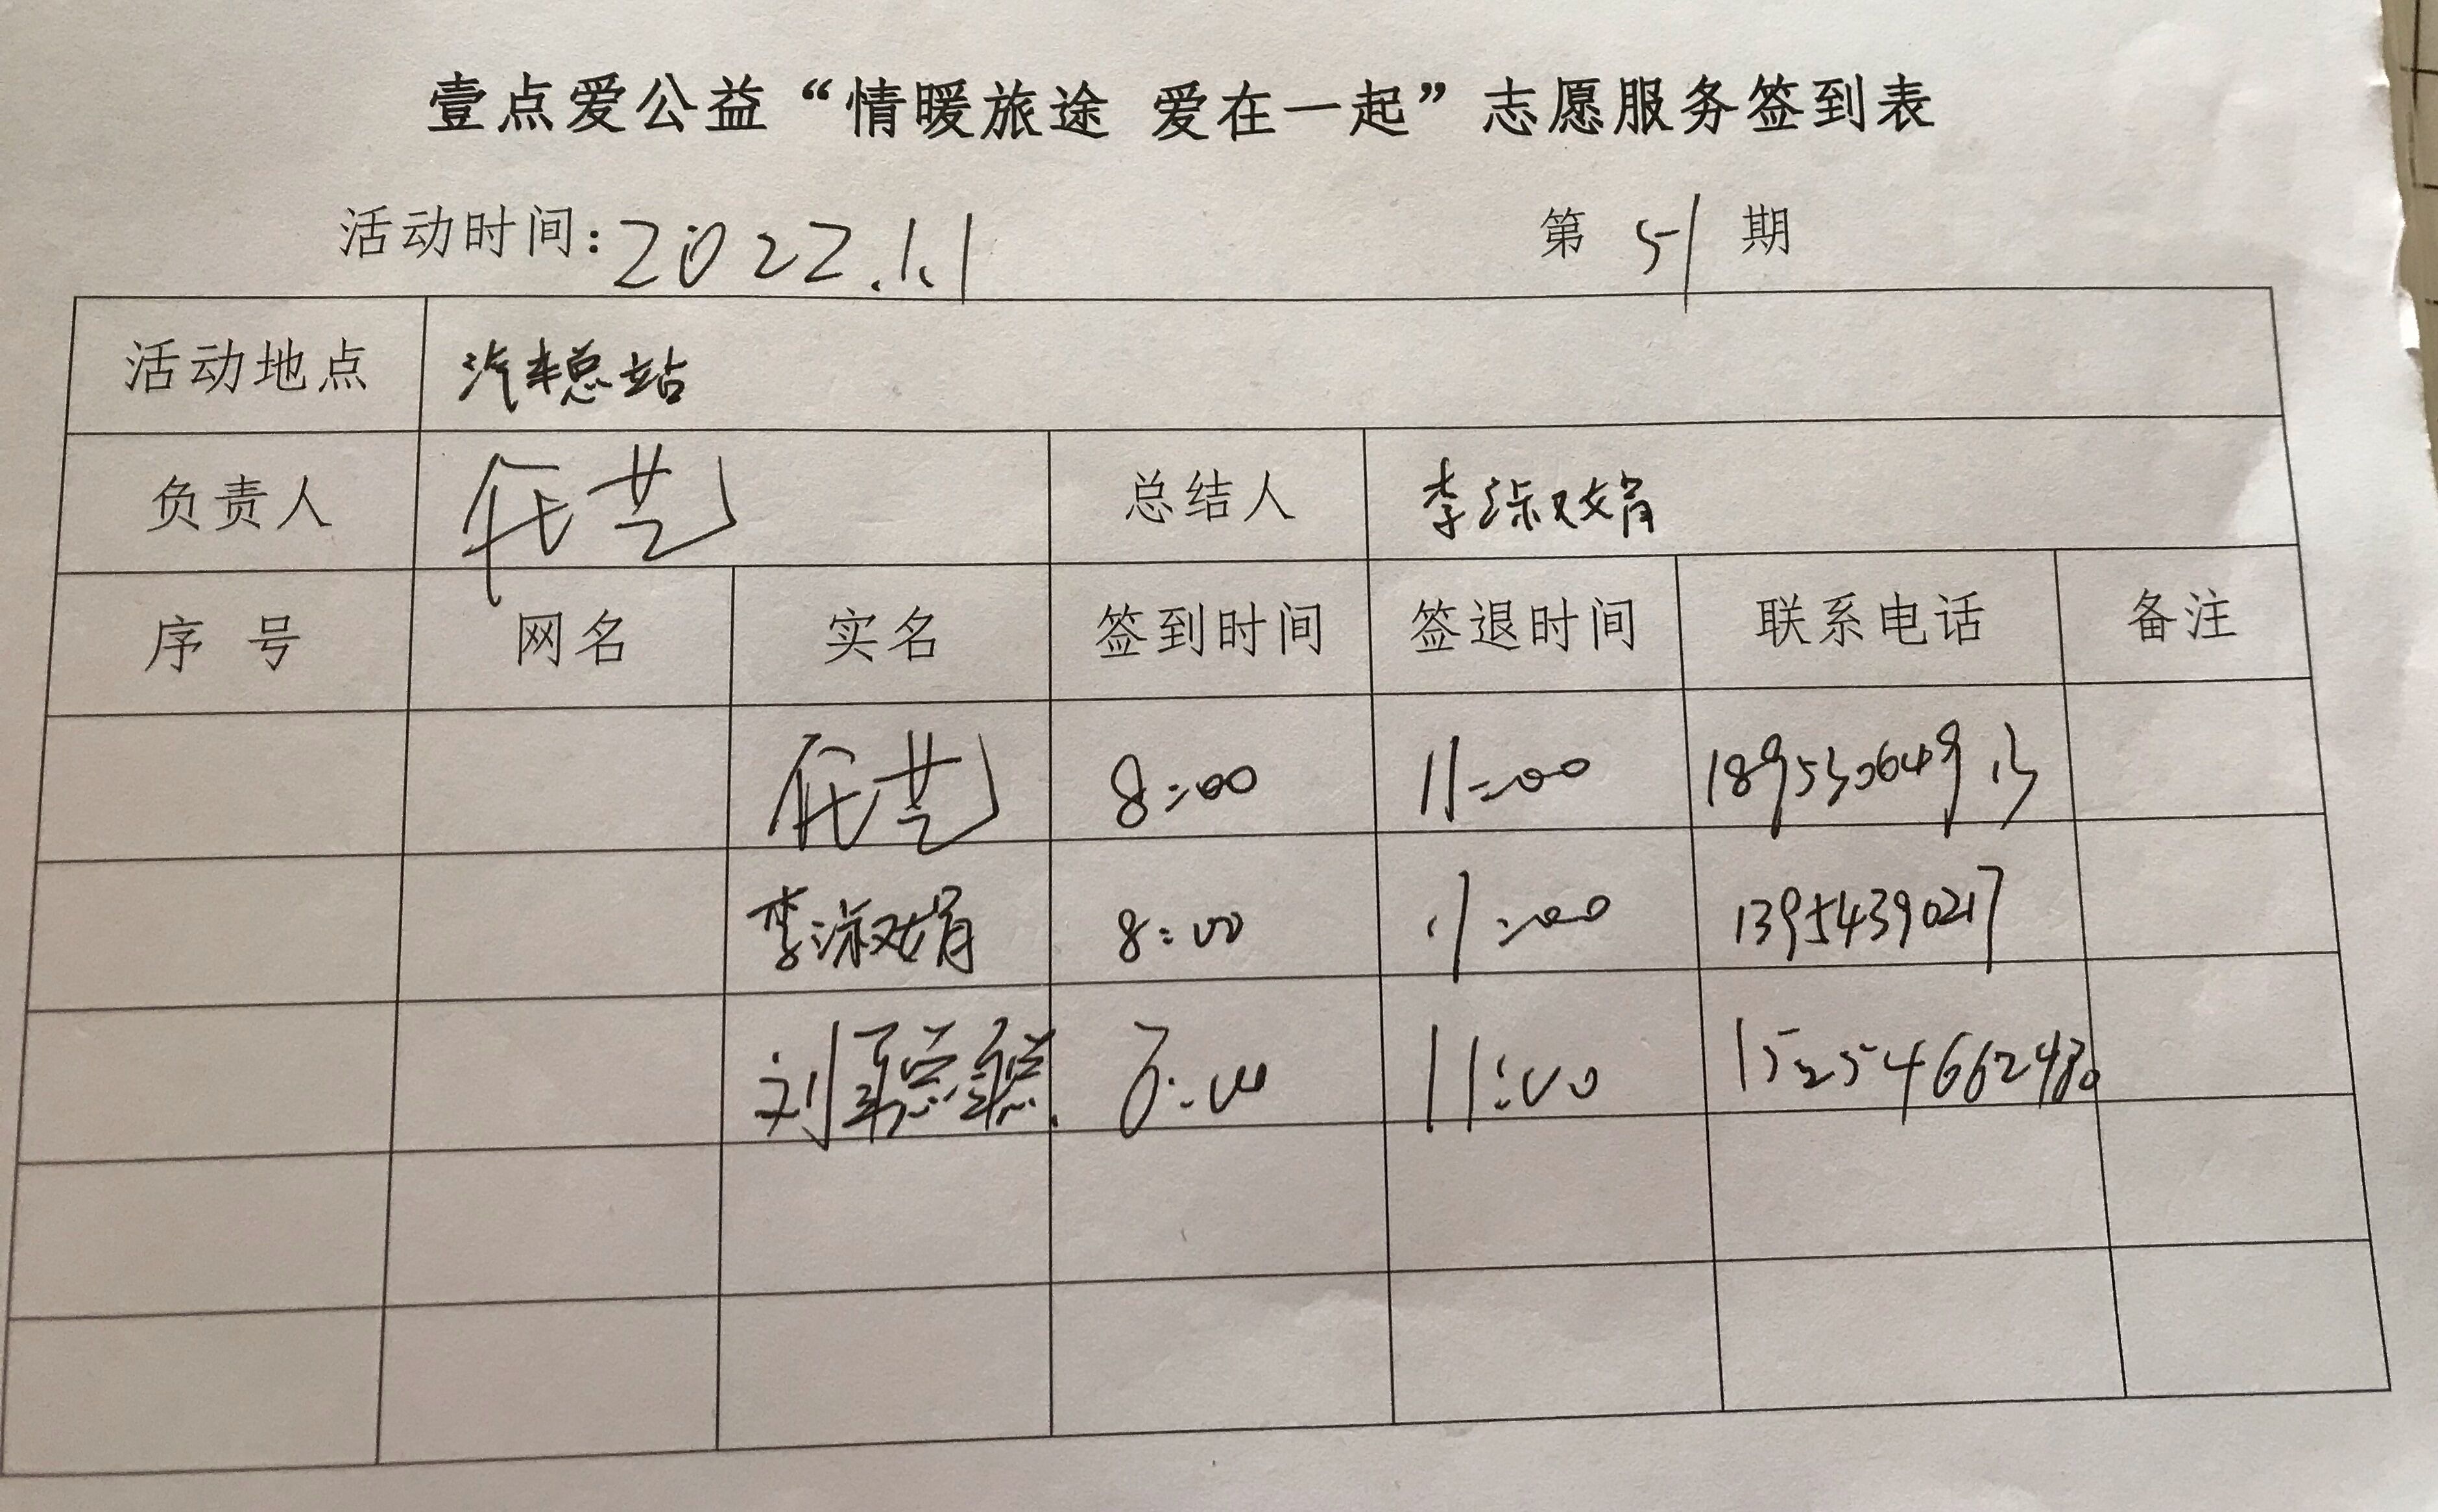 壹点爱公益“情暖旅途 爱在一起”志愿服务签到表
活动时间:2022.1.1 第 51 期
活动地点 汽车总站
负责人 任艺 总结人 李淑娟
序 号 网名 实名 签到时间 签退时间 联系电话 备注
任艺 8:00 11:00 18953064913
李淑娟 8:00 11:00 13954390217
刘聪聪 8:00 11:00 15254662480